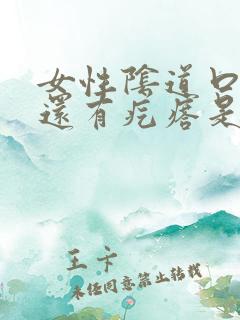 女性陰道口
還有疙瘩是
王卞
未经同意禁止转载